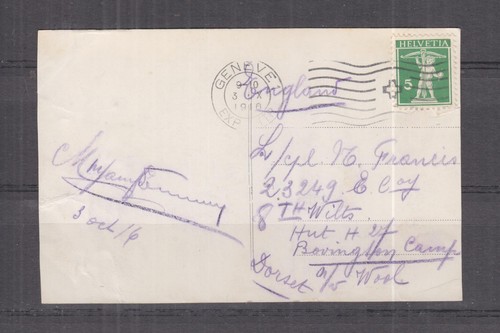 HELVETIA
5
GENEVE
EXP
England
L/cpl N. Francis
23249 E Coy
8TH Wilts
Hut H 27
Bovington Camp
n/v Wool
Dorset
3 oct 16